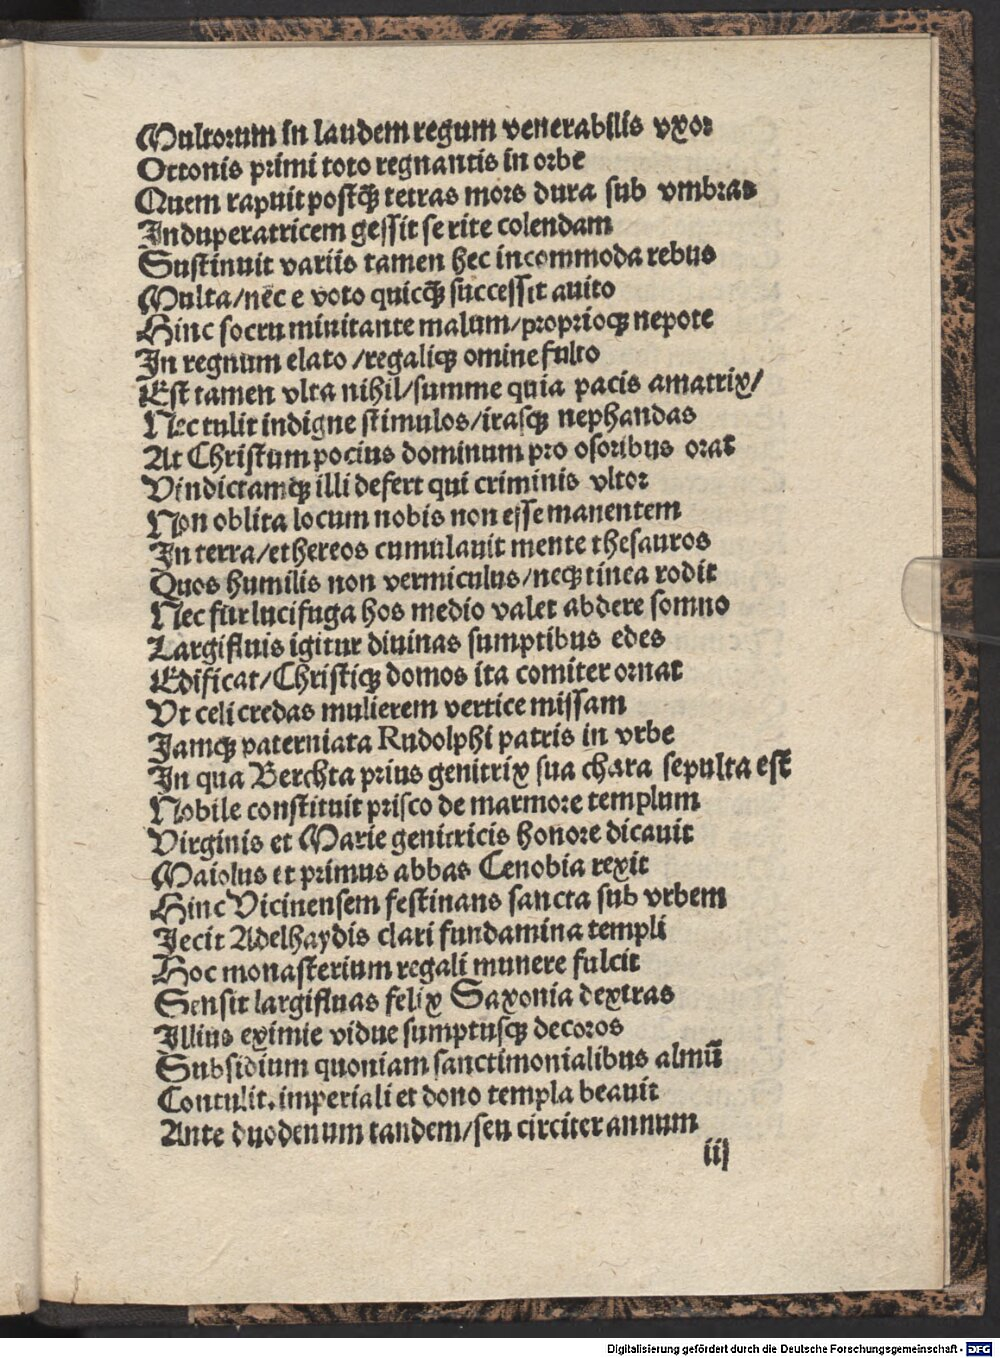 Multorum in laudem regum venerabilis vxor
Ottonis primi toto regnantis in orbe
Quem rapuit postqȝ tetras mors dura sub vmbras
Induperatricem gessit se rite colendam
Sustinuit variis tamen hec incommoda rebus
Multa/nec e voto quicqȝ successit auito
Hinc socru minitante malum/proprioqȝ nepote
In regnum elato/regaliqȝ omine fulto
Est tamen vlta nihil/summe quia pacis amatrix/
Nec tulit indigne stimulos/irasqȝ nephandas
At Christum pocius dominum pro osoribus orat
Vindictamqȝ illi defert qui criminis vltor
Non oblita locum nobis non esse manentem
In terra/ethereos cumulauit mente thesauros
Quos humilis non vermiculus/neqȝ tinea rodit
Nec fur lucifuga hos medio valet abdere somno
Largifluis igitur diuinas sumptibus edes
Edificat/Christiqȝ domos ita comiter ornat
Vt celi credas mulierem vertice missam
Jamqȝ paterniata Rudolphi patris in vrbe
In qua Berchta prius genitrix sua chara sepulta est
Nobile constituit prisco de marmore templum
Virginis et Marie genitricis honore dicauit
Maiolus et primus abbas Cenobia rexit
Hinc Vicinensem festinans sancta sub vrbem
Jecit Adelhaydis clari fundamina templi
Hoc monasterium regali munere fulcit
Sensit largifluas felix Saxonia dextras
Illius eximie vidue sumptusqȝ decoros
Subsidium quoniam sanctimonialibus almū
Contulit. imperiali et dono templa beauit
Ante duodenum tandem/seu circiter annum
iij
Digitalisierung gefördert durch die Deutsche Forschungsgemeinschaft - DFG